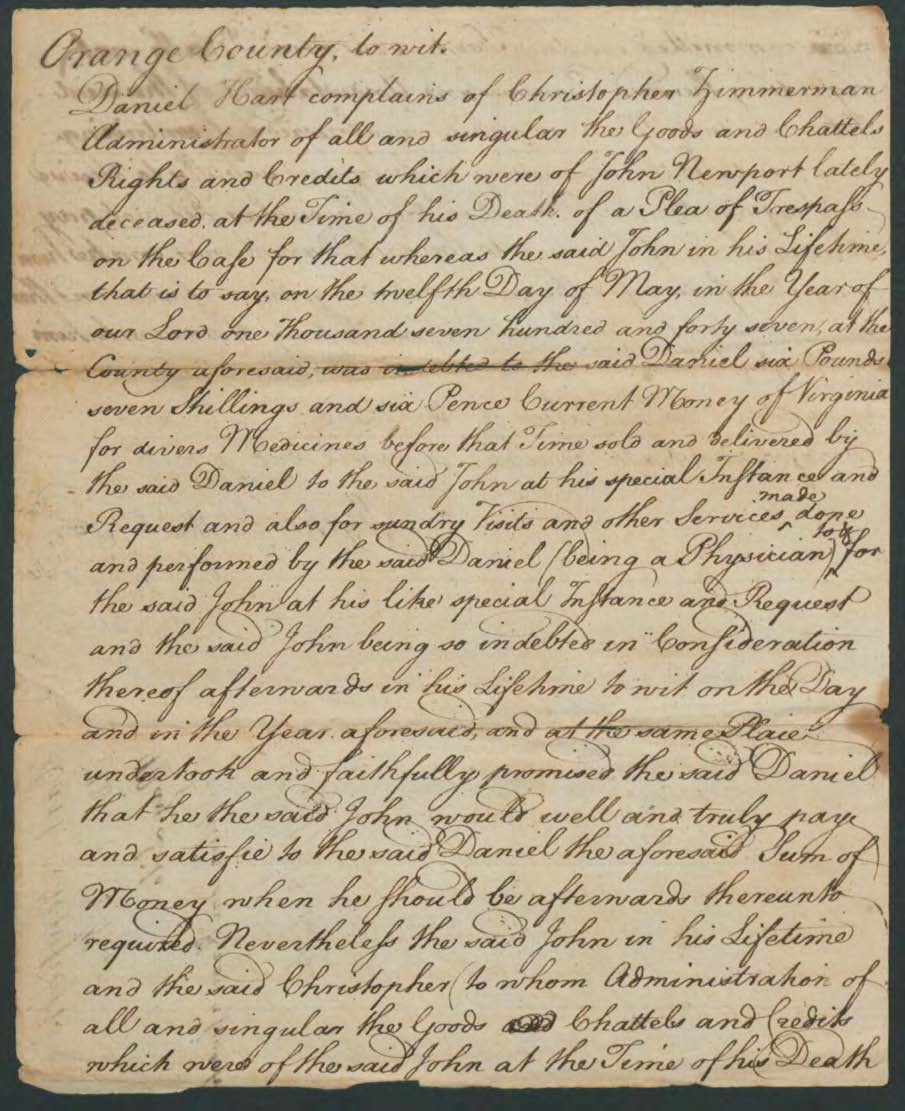 Orange County, to wit.
Daniel Hart complains of Christopher Zimmerman
Administrator of all and singular the Goods and Chattels
Rights and Credits which were of John Newport lately
deceased at the Time of his Death of a Plea of Trespass
on the Case for that whereas the said John in his Lifetime,
that is to say, on the twelfth Day of May, in the Year of
our Lord one thousand seven hundred and forty seven, at the
County aforesaid, was indebted to the said Daniel six Pounds
seven Shillings and six Pence Current Money of Virginia
for divers Medicines before that Time sold and delivered by
the said Daniel to the said John at his special Instance and
Request and also for sundry Visits and other Services made done
and performed by the said Daniel (being a Physician) to & for
the said John at his like special Instance and Request
and the said John being so indebted in Consideration
thereof afterwards in his Lifetime to wit on the Day
and in the Year aforesaid, and at the same Place
undertook and faithfully promised the said Daniel
that he the said John would well and truly pay
and satisfie to the said Daniel the aforesaid Sum of
Money when he should be afterwards thereunto
required. Nevertheless the said John in his Lifetime
and the said Christopher (to whom Administration of
all and singular the Goods Chattels and Credits
which were of the said John at the Time of his Death